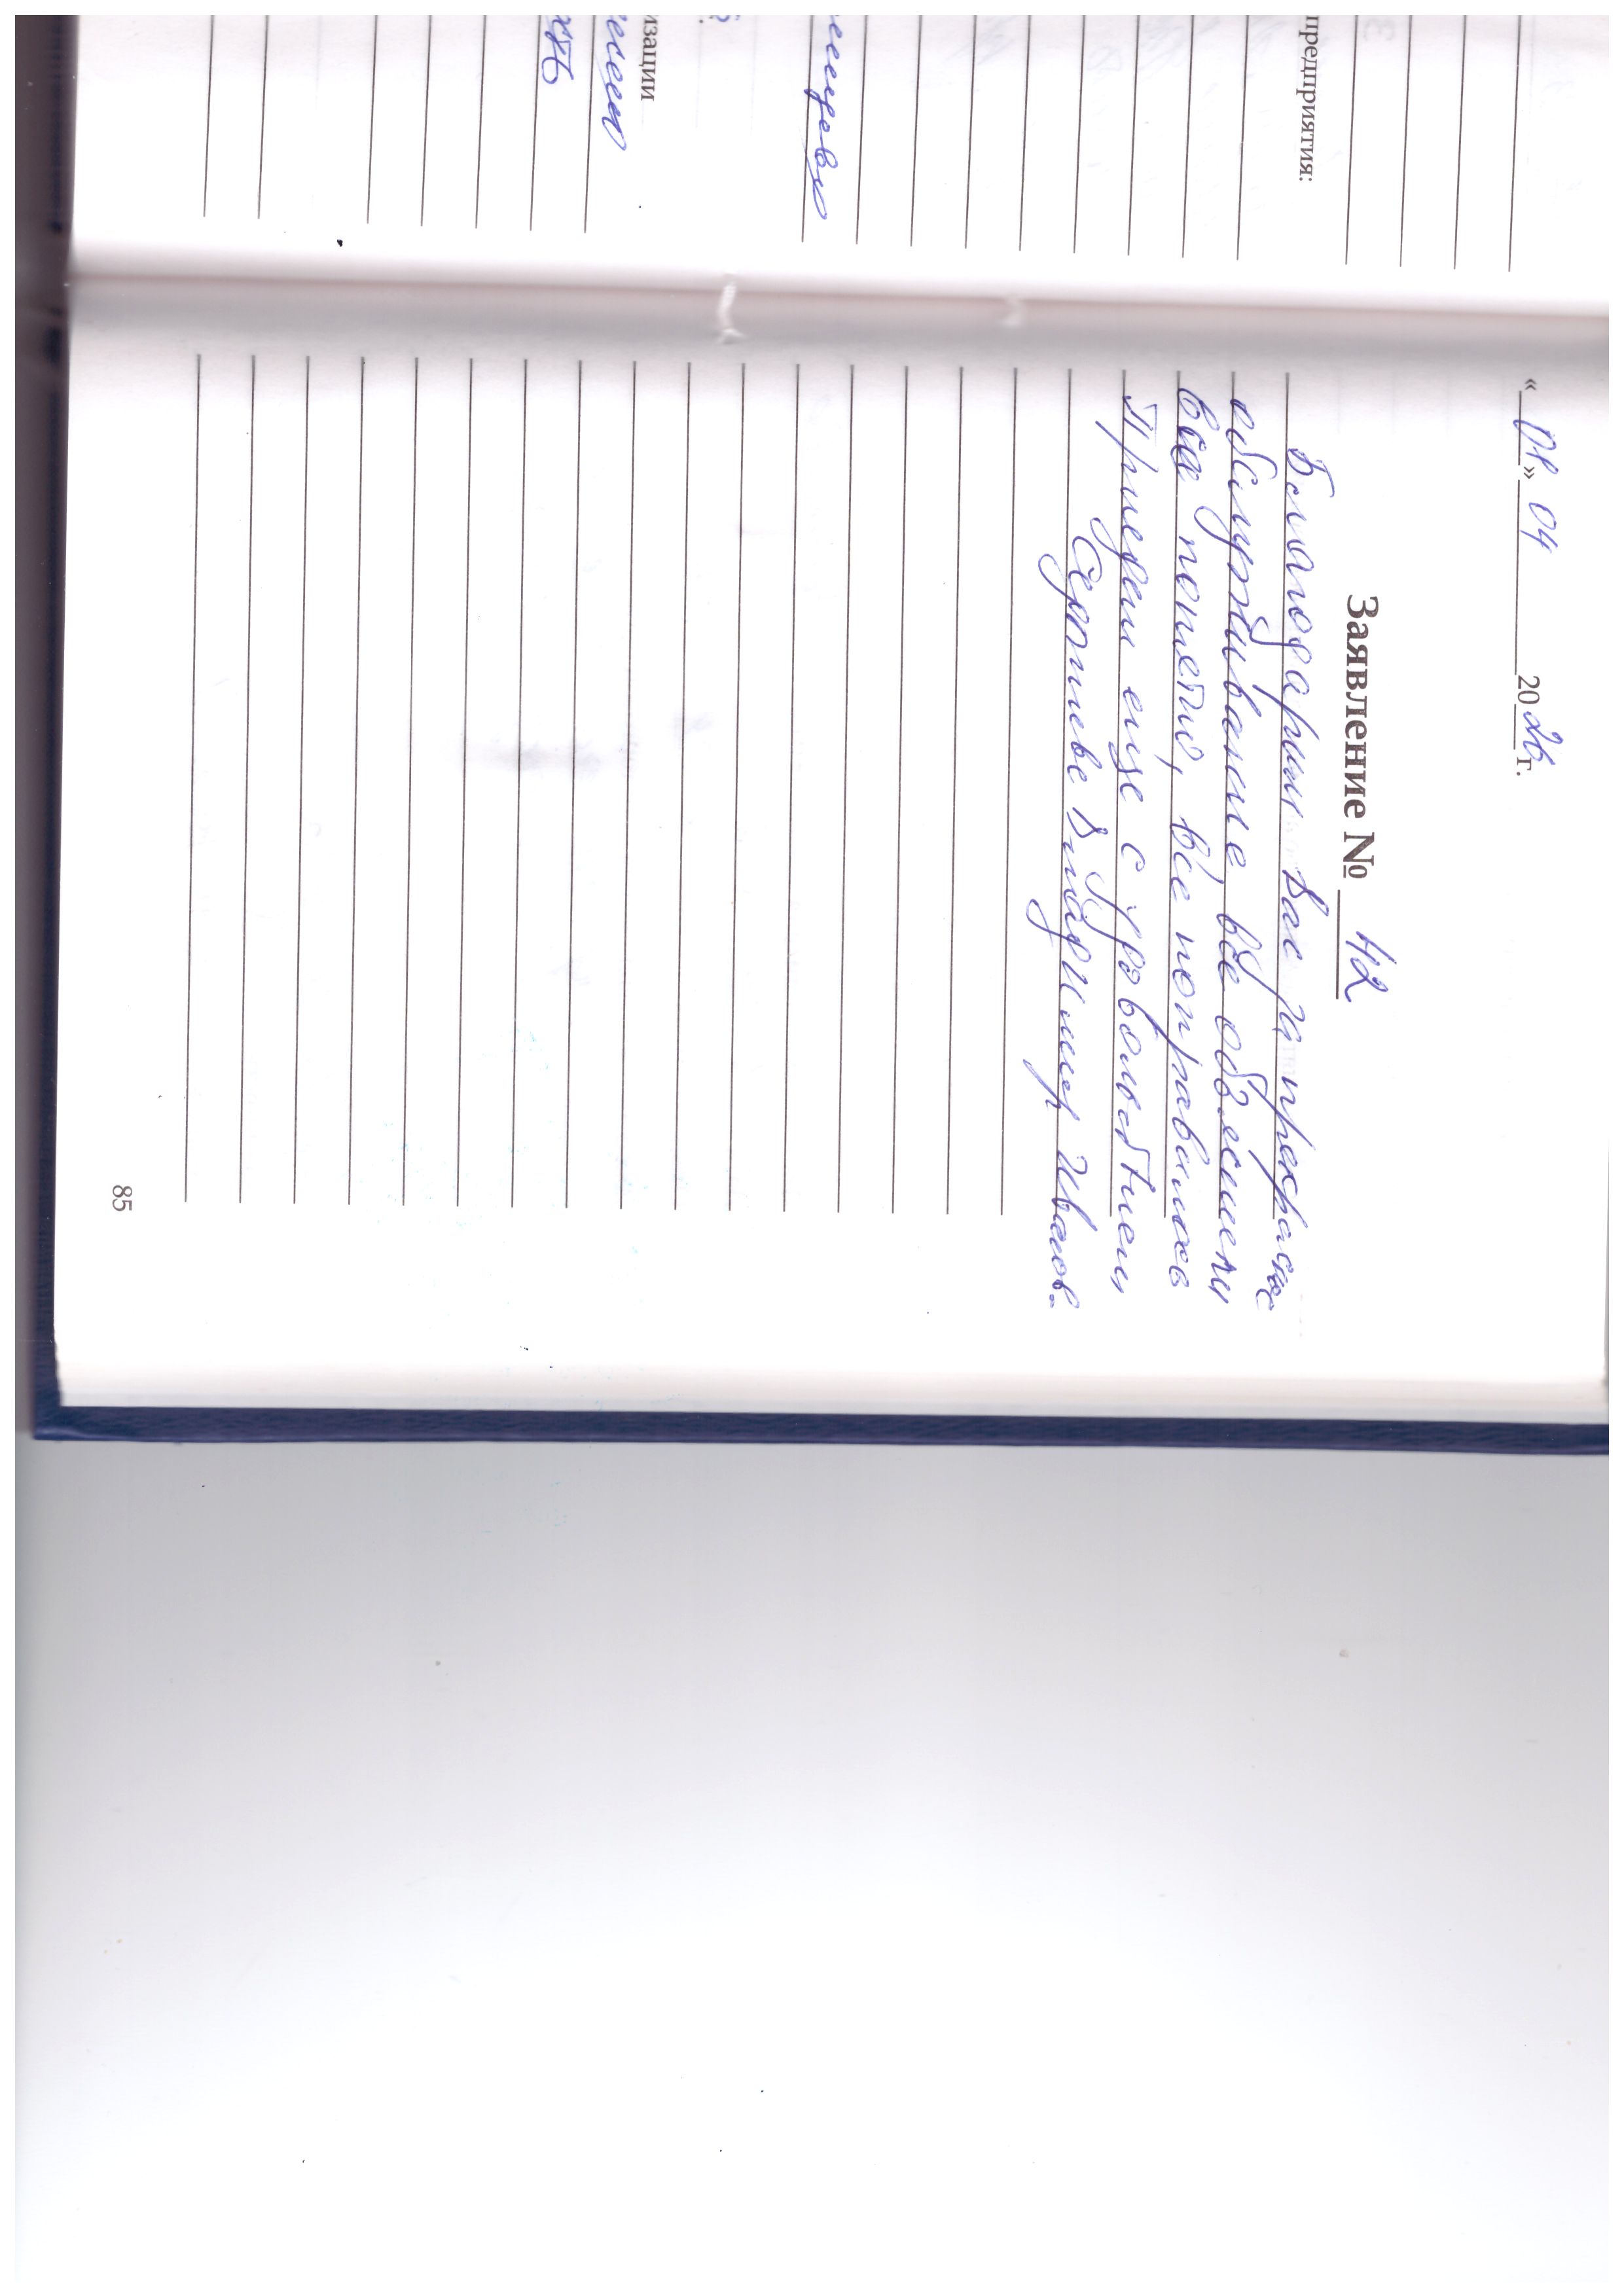 предприятия:
изации
«01» 04 2026 г.
Заявление № 42
Благодарим Вас за прекрасное
обслуживание, все объяснили
все понятно, все понравилось
Приедем еще с удовольствием
Владимир Иванов.
85